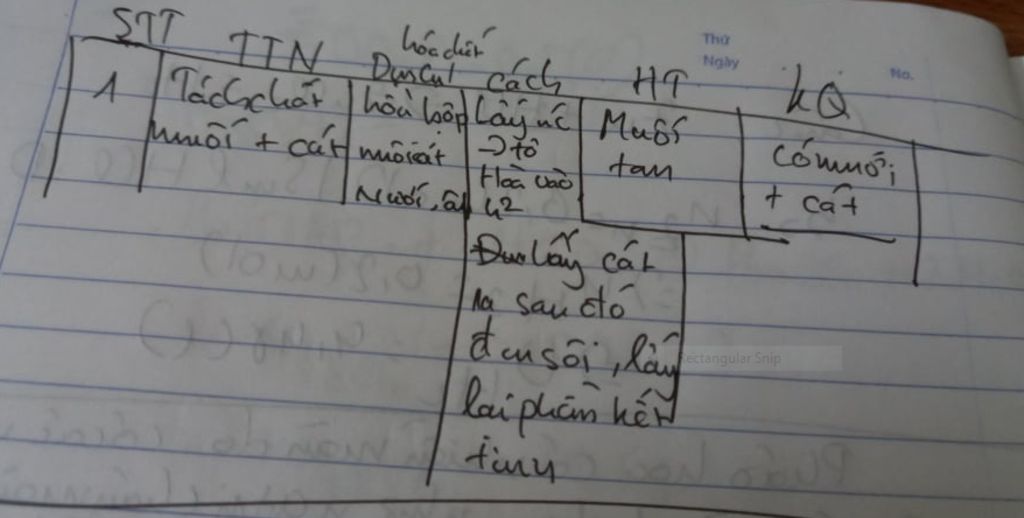 STT TTN hóa chất Dụng cụ cách HT KQ
Thứ
Ngày
No.
1
Tách chất
muối + cát
hỗn hợp
muối cát
Nước,
Lấy
→ tô
Hoà vào
h²
Muối
tan
Có muối
+ cát
lấy cát
ra sau đó
đun sôi, lấy
lại phần kết
tinh
Rectangular Snip